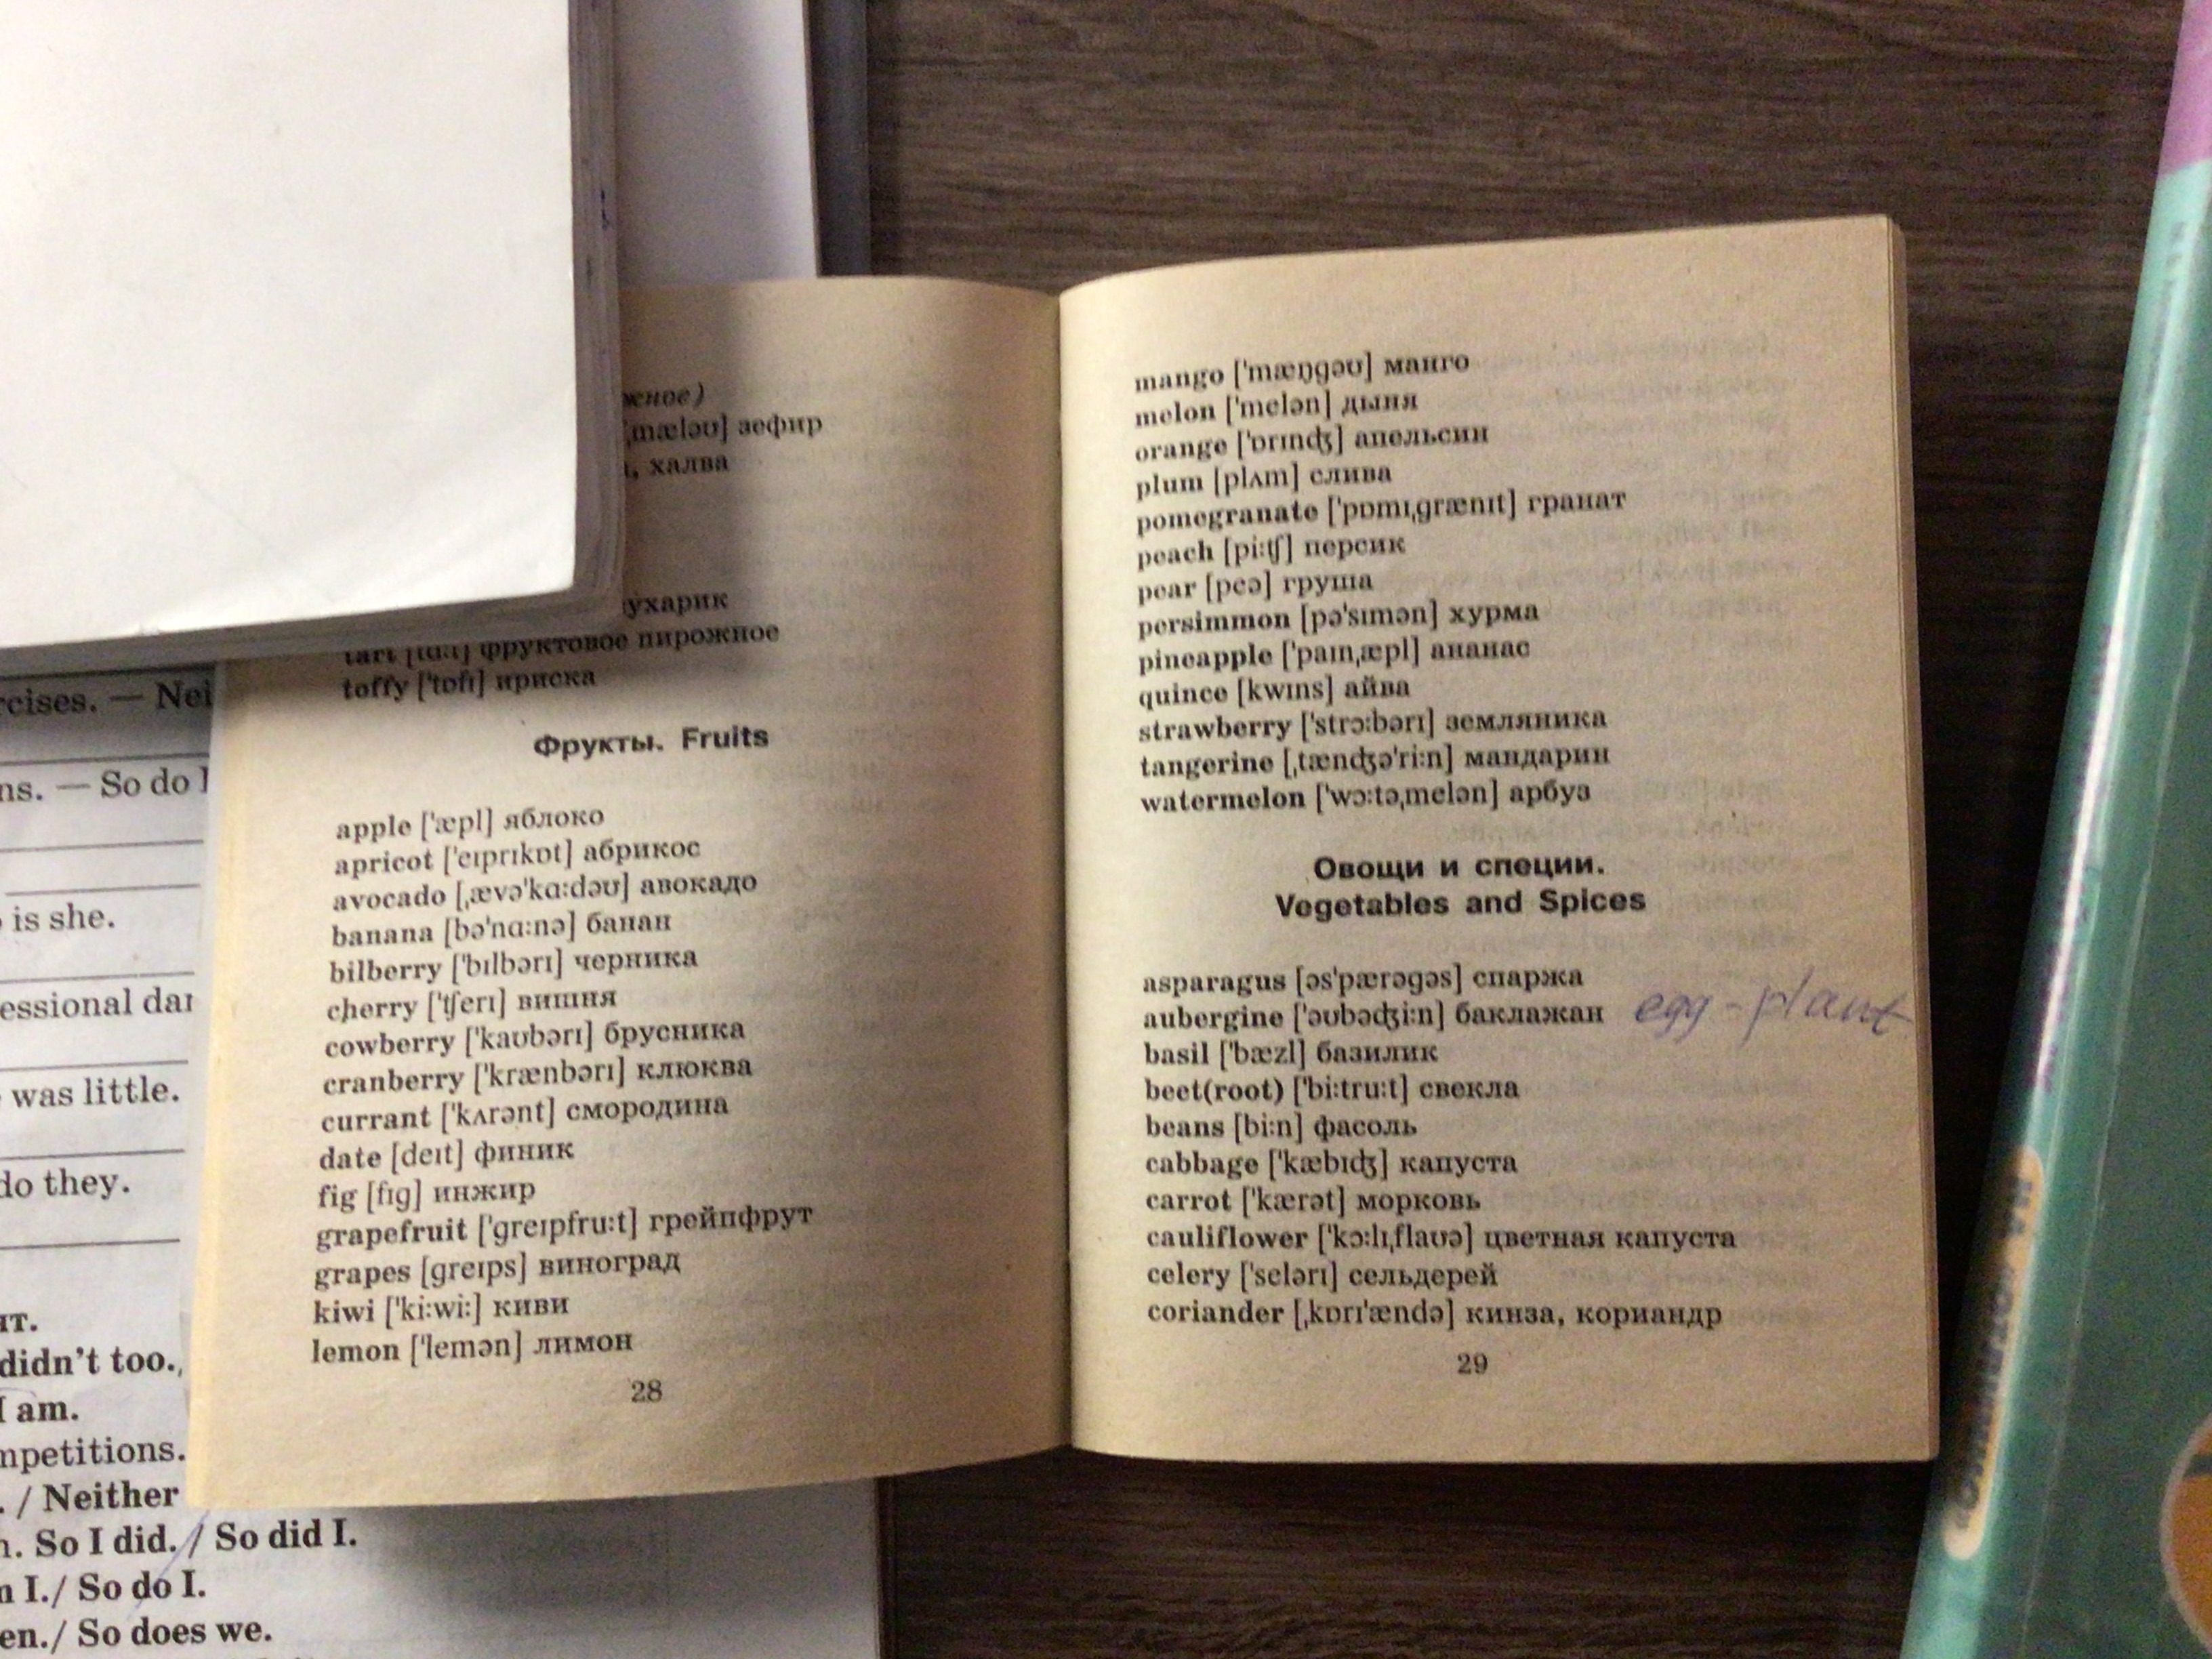 жное)
ˌmæləʊ] зефир
, халва
ухарик
tart [tɑ:t] фруктовое пирожное
toffy ['tɒfɪ] ириска
Фрукты. Fruits
apple ['æpl] яблоко
apricot ['eɪprɪkɒt] абрикос
avocado [ˌævə'kɑ:dəʊ] авокадо
banana [bə'nɑ:nə] банан
bilberry ['bɪlbərɪ] черника
cherry ['ʧerɪ] вишня
cowberry ['kaʊbərɪ] брусника
cranberry ['krænbərɪ] клюква
currant ['kʌrənt] смородина
date [deɪt] финик
fig [fɪg] инжир
grapefruit ['greɪpfru:t] грейпфрут
grapes [greɪps] виноград
kiwi ['ki:wi:] киви
lemon ['lemən] лимон
28
mango ['mæŋgəʊ] манго
melon ['melən] дыня
orange ['ɒrɪnʤ] апельсин
plum [plʌm] слива
pomegranate ['pɒmɪˌgrænɪt] гранат
peach [pi:ʧ] персик
pear [peə] груша
persimmon [pə'sɪmən] хурма
pineapple ['paɪnˌæpl] ананас
quince [kwɪns] айва
strawberry ['strɔ:bərɪ] земляника
tangerine [ˌtænʤə'ri:n] мандарин
watermelon ['wɔ:təˌmelən] арбуз
Овощи и специи.
Vegetables and Spices
asparagus [əs'pærəgəs] спаржа
aubergine ['əʊbəʤi:n] баклажан egg-plant
basil ['bæzl] базилик
beet(root) ['bi:tru:t] свекла
beans [bi:n] фасоль
cabbage ['kæbɪʤ] капуста
carrot ['kærət] морковь
cauliflower ['kɔ:lɪˌflaʊə] цветная капуста
celery ['selərɪ] сельдерей
coriander [ˌkɒrɪ'ændə] кинза, кориандр
29
rcises. — Nei
ns. — So do I
is she.
essional dar
was little.
do they.
нт.
didn't too.
I am.
mpetitions.
. / Neither
n. So I did. / So did I.
n I./ So do I.
en./ So does we.